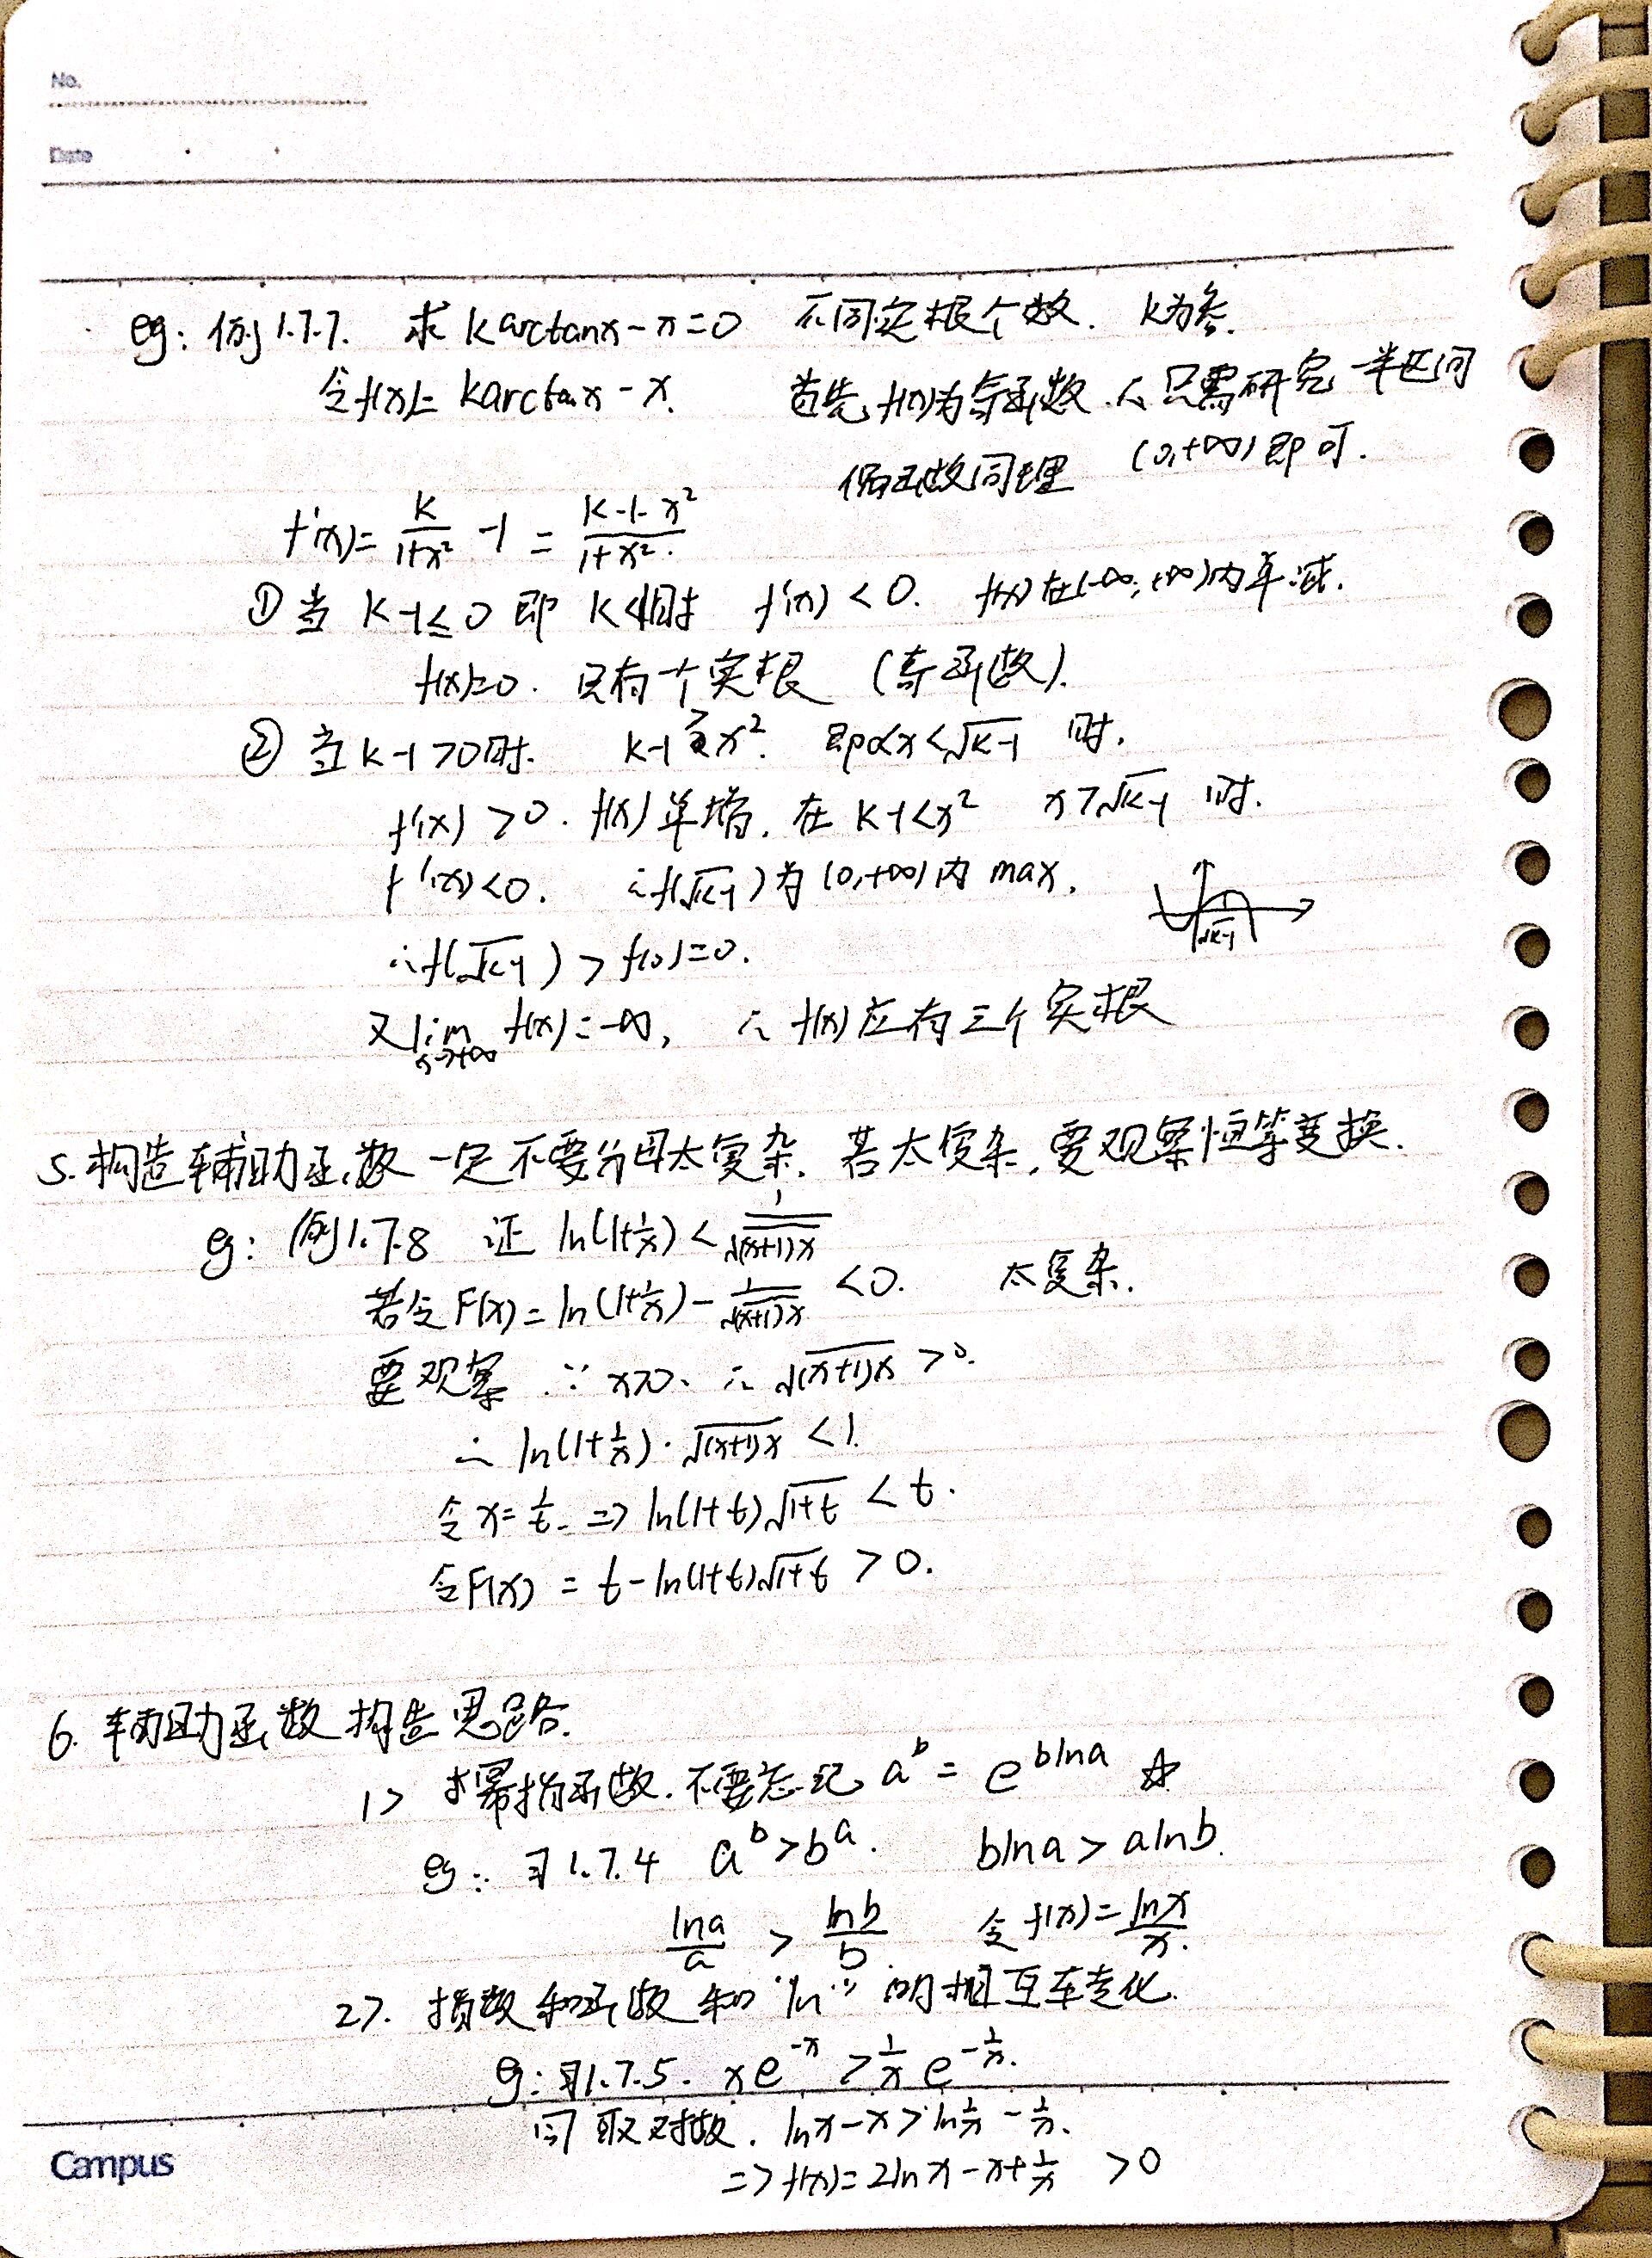 No.
Date
eg: 例1.7.7. 求 karctanx-x=0 不同实根个数. k为参.
令f(x)= karctanx-x. 首先,f(x)为奇函数 ∴只需研究一半区间
偶函数同理 (0,+∞)即可.
f'(x)= k/(1+x²) -1 = (k-1-x²)/(1+x²).
①当 k-1≤0 即 k≤1时 f'(x)<0. f(x)在(-∞,+∞)内单减.
f(x)=0. 只有一个实根 (奇函数).
②当k-1>0时. k-1>x². 即0<x<√(k-1) 时.
f'(x)>0. f(x)单增. 在 k-1<x² x>√(k-1) 时.
f'(x)<0. ∴f(√(k-1))为(0,+∞)内 max.
√(k-1)
∴f(√(k-1))>f(0)=0.
又lim x→+∞ f(x)=-∞, ∴ f(x)应有三个实根
5.构造辅助函数一定不要分母太复杂. 若太复杂,要观察恒等变换.
eg: 例1.7.8 证 ln(1+1/x) < 1/√((x+1)x)
若令F(x)=ln(1+1/x)-1/√((x+1)x) <0. 太复杂.
要观察 ∵x>0. ∴ √((x+1)x) >0.
∴ ln(1+1/x)·√((x+1)x) <1.
令x=1/t. => ln(1+t)√(1+t) <t.
令F(x) = t-ln(1+t)√(1+t) >0.
6. 辅助函数构造思路.
1> 求幂指函数.不要忘记 a^b = e^(blna) ☆
eg: 习1.7.4 a^b>b^a. blna>alnb.
lna/a > lnb/b 令f(x)=lnx/x.
2>. 指数和函数和"ln"的相互转化.
eg: 习1.7.5. xe^(-x) >1/x e^(-1/x).
同取对数. lnx-x>ln1/x-1/x.
=>f(x)=2lnx-x+1/x >0
Campus